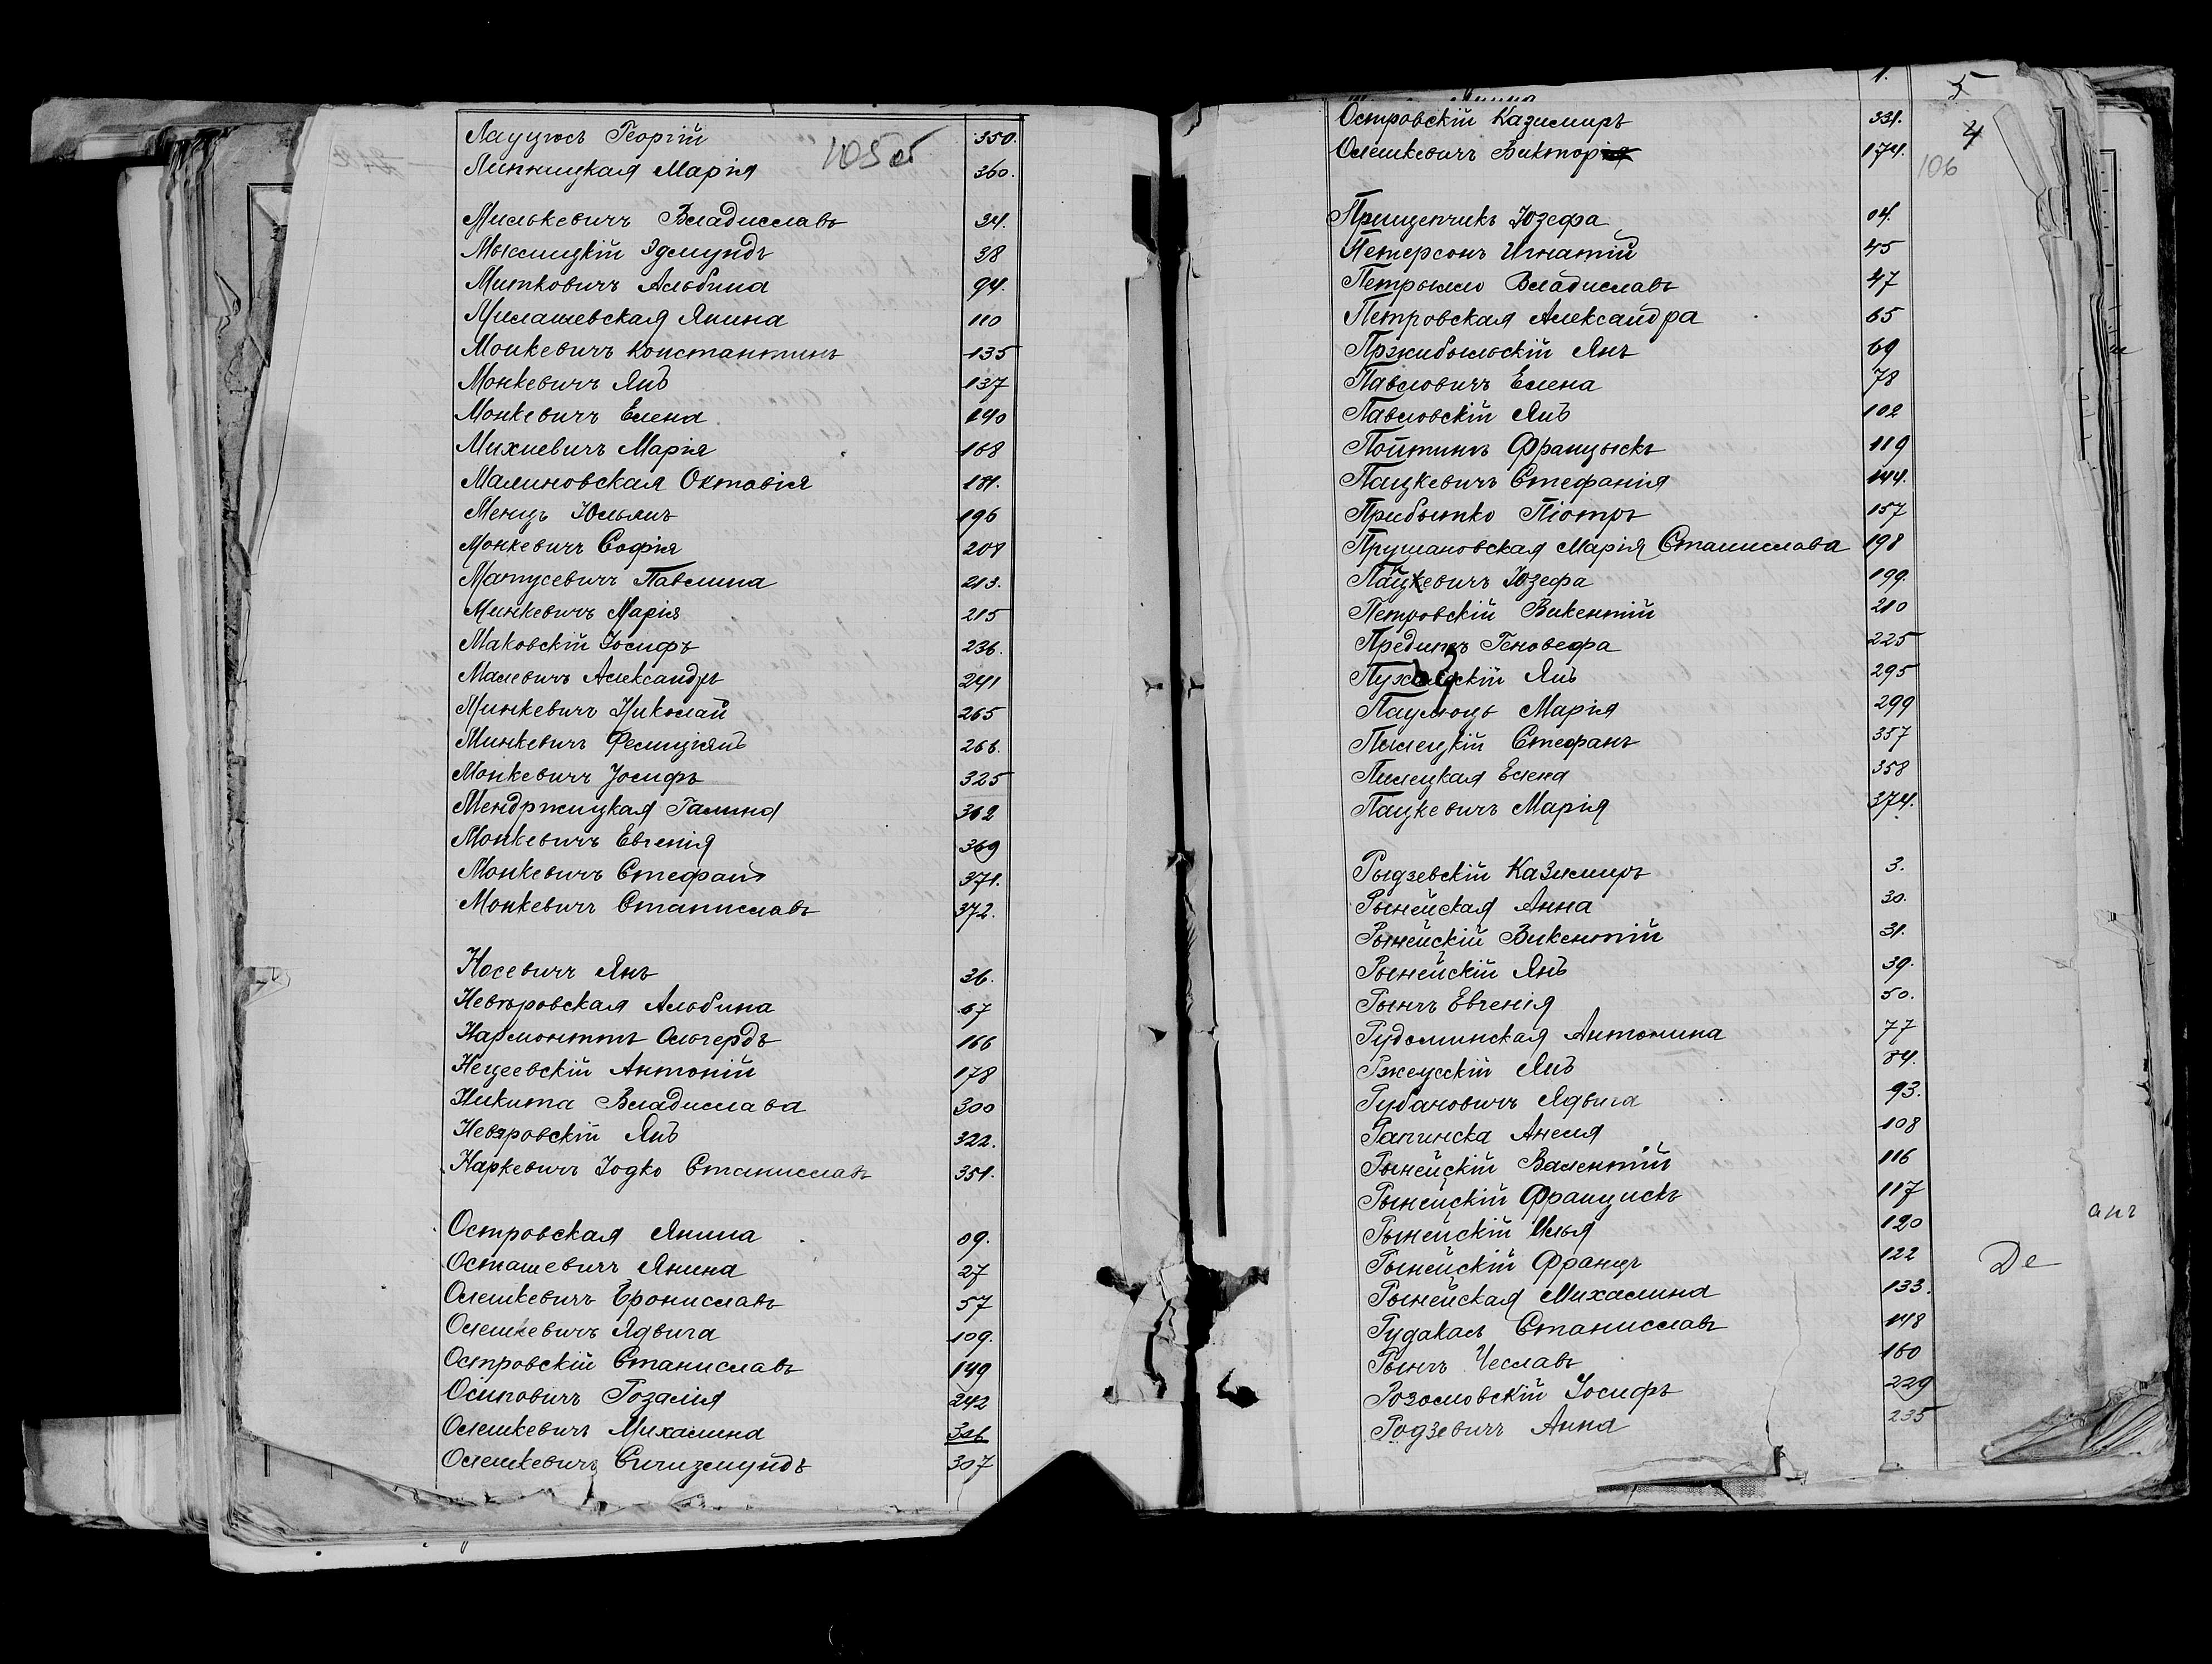 Лауцюсъ Георгій 350.
105 об
Липницкая Марія 360.
Милькевичъ Владиславъ 34.
Мыслицкій Эдмундъ 38
Митковичъ Альбина 94.
Милашевская Янина 110
Монкевичъ Константинъ 135
Монкевичъ Янъ 137
Монкевичъ Елена 140
Михневичъ Марія 168
Малиновская Октавія 181.
Менцъ Юльянъ 196
Монкевичъ Софія 204
Матусевичъ Павлина 213.
Минкевичъ Марія 215
Маковскій Іосифъ 236.
Малевичъ Александръ 241
Минкевичъ Николай 265
Минкевичъ Фелиціянъ 266.
Монкевичъ Іосифъ 325
Мендржицкая Галина 362
Монкевичъ Евгенія 369
Монкевичъ Стефанъ 371.
Монкевичъ Станиславъ 372.
Носевичъ Янъ 36.
Невѣровская Альбина 67
Нармонттъ Ольгердъ 166
Нецеевскій Антоній 178
Никита Владислава 300
Невяровскій Янъ 322.
Наркевичъ Іодко Станиславъ 351.
Островская Янина 09.
Осташевичъ Янина 27
Олешкевичъ Брониславъ 57
Олешкевичъ Ядвига 109.
Островскій Станиславъ 149
Осиповичъ Розалія 242
Олешкевичъ Михалина 306
Олешкевичъ Сигизмундъ 307
1.
5
Островскій Казимиръ 331.
4
Олешкевичъ Викторія 174.
106
Прищепчикъ Юзефа 04.
Петерсонъ Игнатій 45
Петрылло Владиславъ 47
Петровская Александра 65
Пржибыльскій Янъ 69
Павловичъ Елена 78
Павловскій Янъ 102
Пойтинъ Францыскъ 119
Пацкевичъ Стефанія 144.
Прибытко Піотръ 157
Прушановская Марія Станислава 198
Пацкевичъ Юзефа 199.
Петровскій Викентій 210
Предитъ Геновефа 225
Янъ 295
Марія 299
Пилецкій Стефанъ 357
Пилецкая Елена 358
Пацкевичъ Марія 374.
Рыдзевскій Казимиръ 3.
Рынейская Анна 30.
Рынейскій Викентій 31.
Рынейскій Янъ 39.
Рынчъ Евгенія 50.
Рудоминская Антонина 77
Ржеусскій Янъ 84.
Рубановичъ Ядвига 93.
Рапинска Анеля 108
Рынейскій Валентій 116
Рынейскій Францискъ 117
Рынейскій Илья 120
Рынейскій Францъ 122
Рынейская Михалина 133.
Рудакъ Станиславъ 148
Рынчъ Чеславъ 160
Розоловскій Іосифъ 229
Родзевичъ Анна 235
De